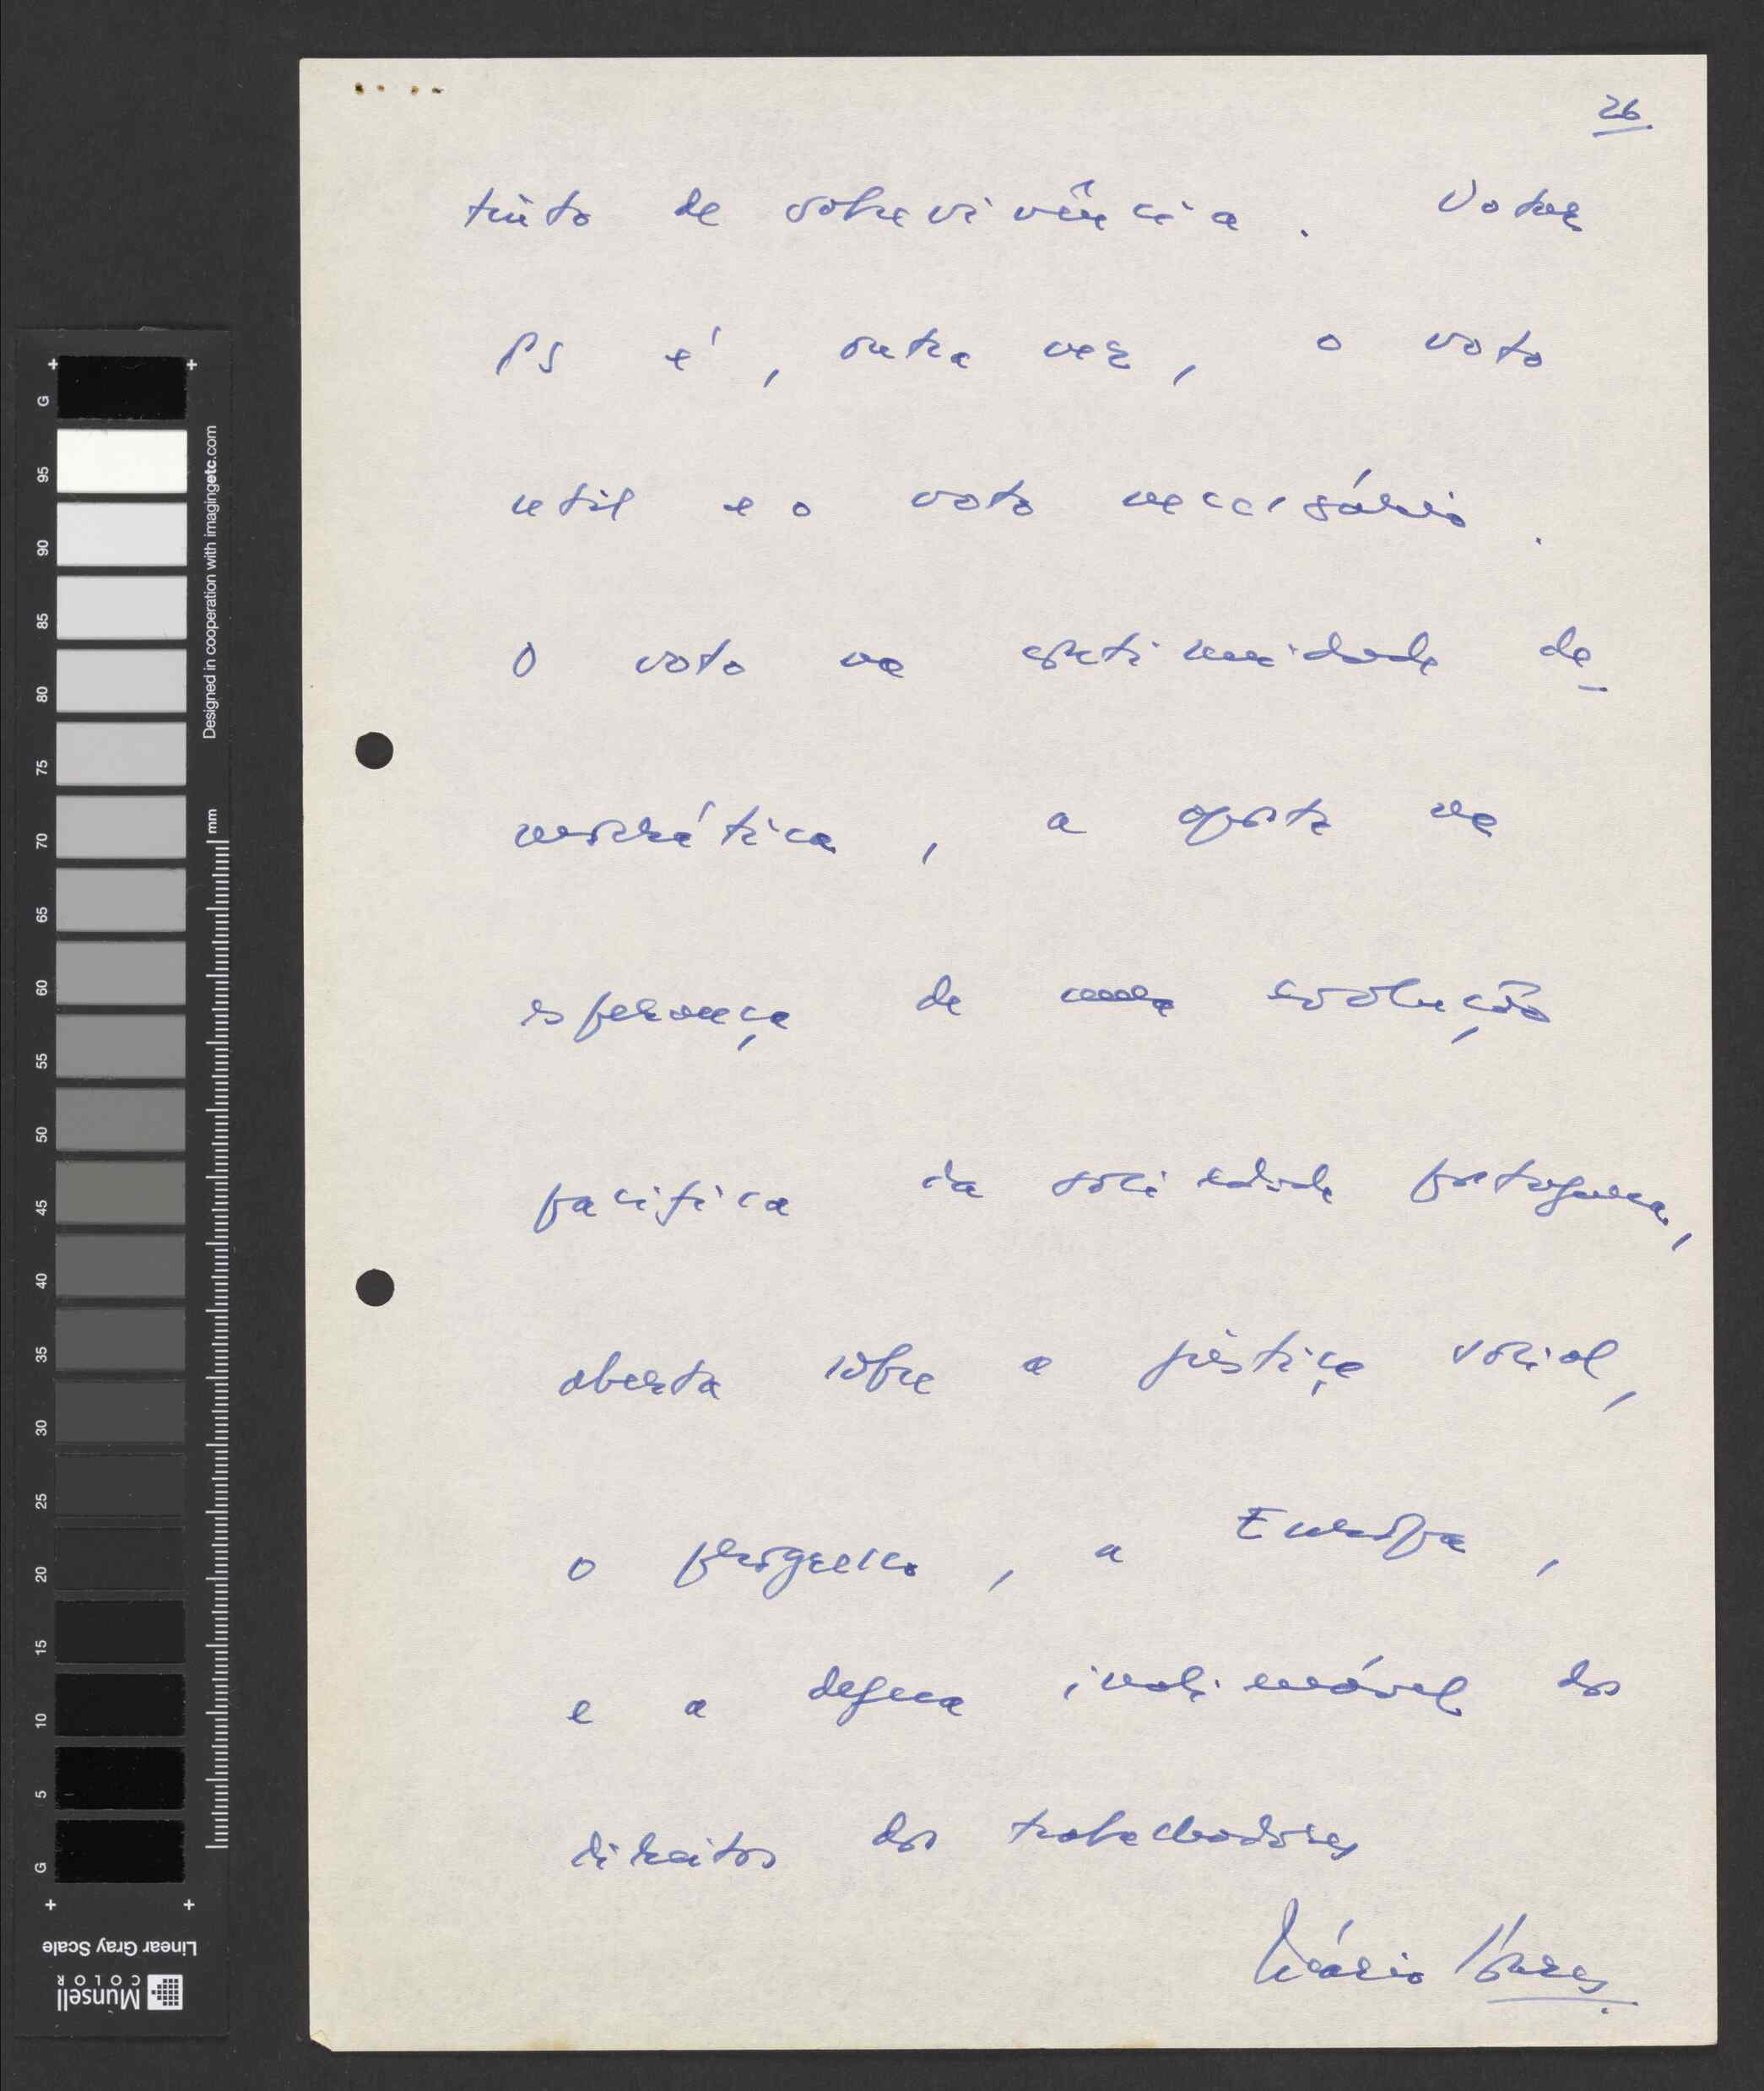 26
tinto de sobrevivência. Votar
PS é, outra vez, o voto
util e o voto necessário.
O voto na de-
mocrática, a aposta na
esperança de uma evolução
pacifica da sociedade portuguesa,
aberta sobre a justiça social,
o progresso, a Európa,
e a defesa inalienável dos
direitos dos trabalhadores
Mário Soares
G
95
90
85
80
75
70
65
60
55
50
45
40
35
30
25
20
15
10
5
G
Designed in cooperation with imagingetc.com
mm
Linear Gray Scale
Munsell
COLOR